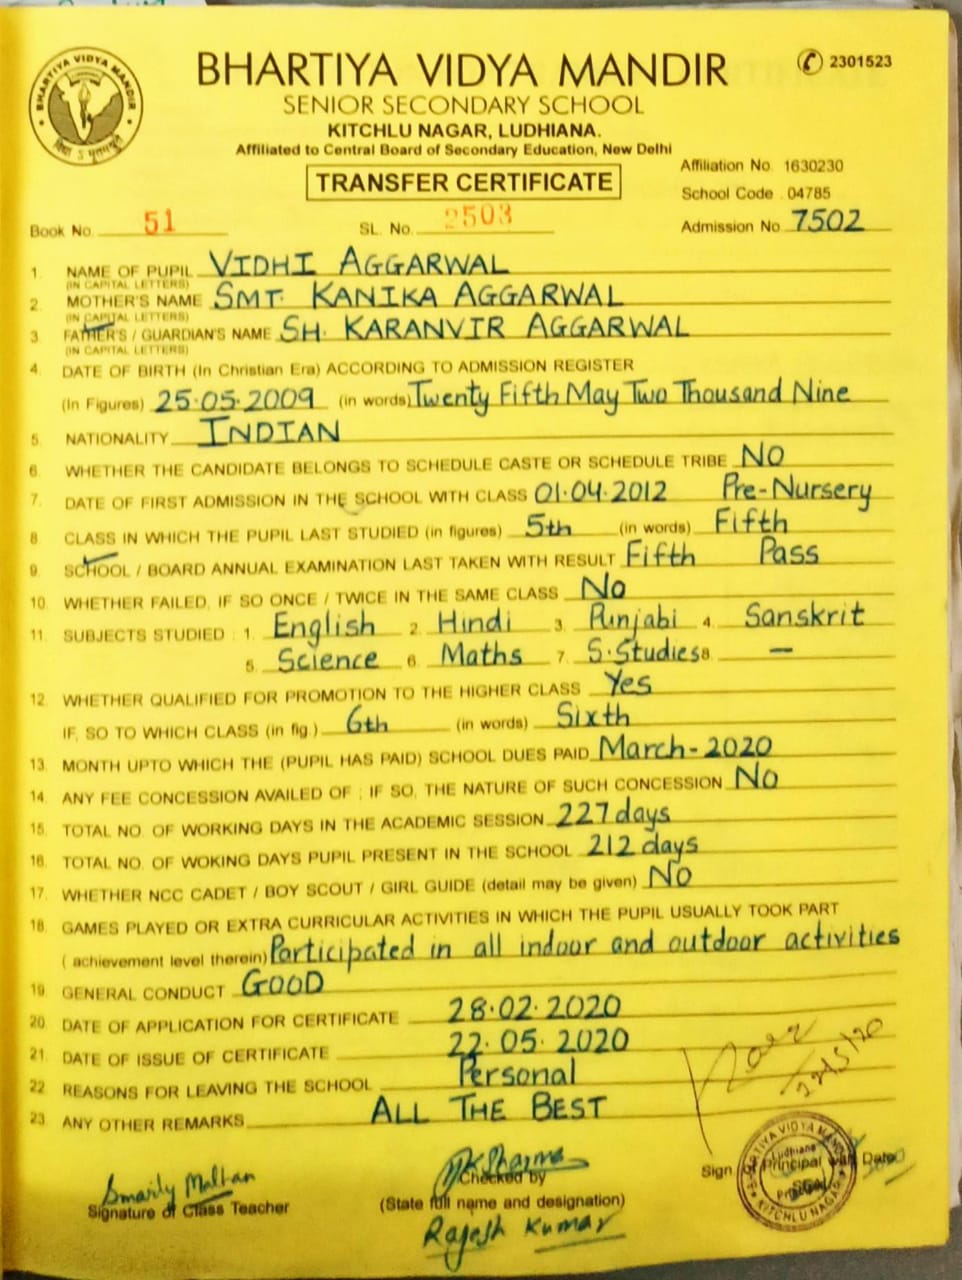 BHARTIYA VIDYA MANDIR
BHARTIYA VIDYA MANDIR
2301523
SENIOR SECONDARY SCHOOL
KITCHLU NAGAR, LUDHIANA.
Affiliated to Central Board of Secondary Education, New Delhi
TRANSFER CERTIFICATE
Affiliation No. 1630230
School Code . 04785
Book No. 51 SL. No. 2503 Admission No 7502
1. NAME OF PUPIL VIDHI AGGARWAL
(IN CAPITAL LETTERS)
2. MOTHER'S NAME SMT. KANIKA AGGARWAL
(IN CAPITAL LETTERS)
3 FATHER'S / GUARDIAN'S NAME SH. KARANVIR AGGARWAL
(IN CAPITAL LETTERS)
4. DATE OF BIRTH (In Christian Era) ACCORDING TO ADMISSION REGISTER
(In Figures) 25.05.2009 (in words) Twenty Fifth May Two Thousand Nine
5. NATIONALITY INDIAN
6. WHETHER THE CANDIDATE BELONGS TO SCHEDULE CASTE OR SCHEDULE TRIBE NO
7. DATE OF FIRST ADMISSION IN THE SCHOOL WITH CLASS 01.04.2012 Pre-Nursery
8. CLASS IN WHICH THE PUPIL LAST STUDIED (in figures) 5th (in words) Fifth
9. SCHOOL / BOARD ANNUAL EXAMINATION LAST TAKEN WITH RESULT Fifth Pass
10. WHETHER FAILED, IF SO ONCE / TWICE IN THE SAME CLASS No
11. SUBJECTS STUDIED : 1. English 2. Hindi 3. Punjabi 4. Sanskrit
5. Science 6. Maths 7. S.Studies 8. —
12. WHETHER QUALIFIED FOR PROMOTION TO THE HIGHER CLASS Yes
IF, SO TO WHICH CLASS (in fig.) 6th (in words) Sixth
13. MONTH UPTO WHICH THE (PUPIL HAS PAID) SCHOOL DUES PAID March-2020
14. ANY FEE CONCESSION AVAILED OF ; IF SO, THE NATURE OF SUCH CONCESSION No
15. TOTAL NO. OF WORKING DAYS IN THE ACADEMIC SESSION 227 days
16. TOTAL NO. OF WOKING DAYS PUPIL PRESENT IN THE SCHOOL 212 days
17. WHETHER NCC CADET / BOY SCOUT / GIRL GUIDE (detail may be given) No
18. GAMES PLAYED OR EXTRA CURRICULAR ACTIVITIES IN WHICH THE PUPIL USUALLY TOOK PART
( achievement level therein) Participated in all indoor and outdoor activities
19. GENERAL CONDUCT GOOD
20. DATE OF APPLICATION FOR CERTIFICATE 28.02.2020
21. DATE OF ISSUE OF CERTIFICATE 22.05.2020
22 REASONS FOR LEAVING THE SCHOOL Personal
23 ANY OTHER REMARKS ALL THE BEST
22/5/20
Sign of Principal with Date
BHARTIYA VIDYA MANDIR
Ludhiana
KITCHLU NAGAR
Checked by
Signature of Class Teacher
(State full name and designation)
Rajesh Kumar